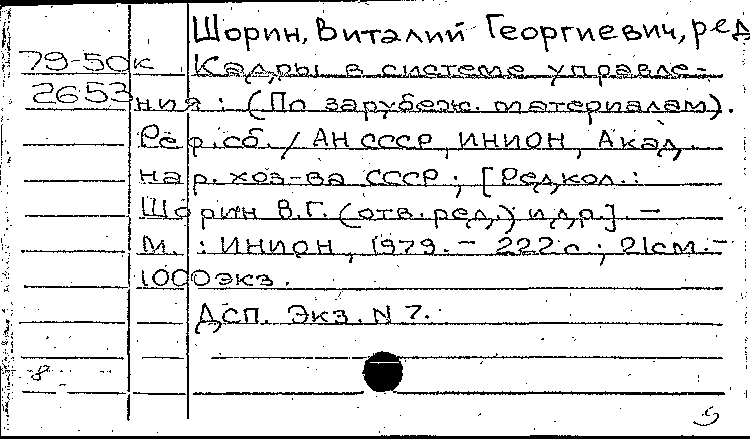 Шорин, Виталий Георгиевич, ред
79-50к Кадры в системе управле-
2653 ния: (По зарубеж. материалам).
Реф. сб. / АН СССР, ИНИОН, Акад.
нар. хоз-ва СССР; [Редкол.:
Шорин В.Г. (отв. ред.) и др.]. -
М.: ИНИОН, 1979. - 222 с; 21 см. -
1000 экз.
ДСП. Экз. N 7.
-8